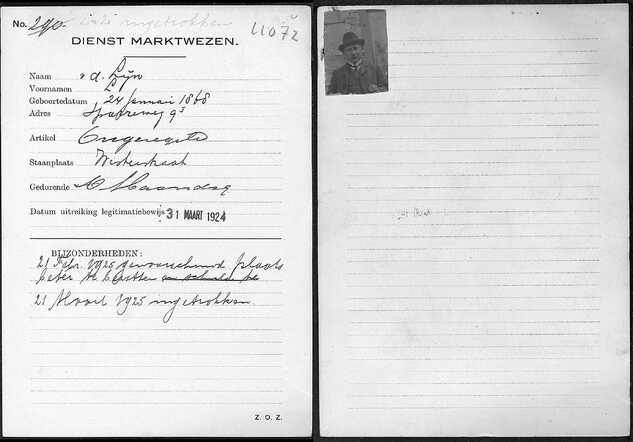 No. 290. ingetrokken
11072
DIENST MARKTWEZEN.
Naam v. d. Lijn
Voornamen L
Geboortedatum 24 Januari 1868
Adres 9³
Artikel Ongeregeld
Staanplaats Westerstraat
Gedurende Maandag
Datum uitreiking legitimatiebewijs 31 MAART 1924
BIJZONDERHEDEN:
21 Febr. 1925 gewaarschuwd plaats
beter te bezetten
21 Maart 1925 ingetrokken.
Z. O. Z.